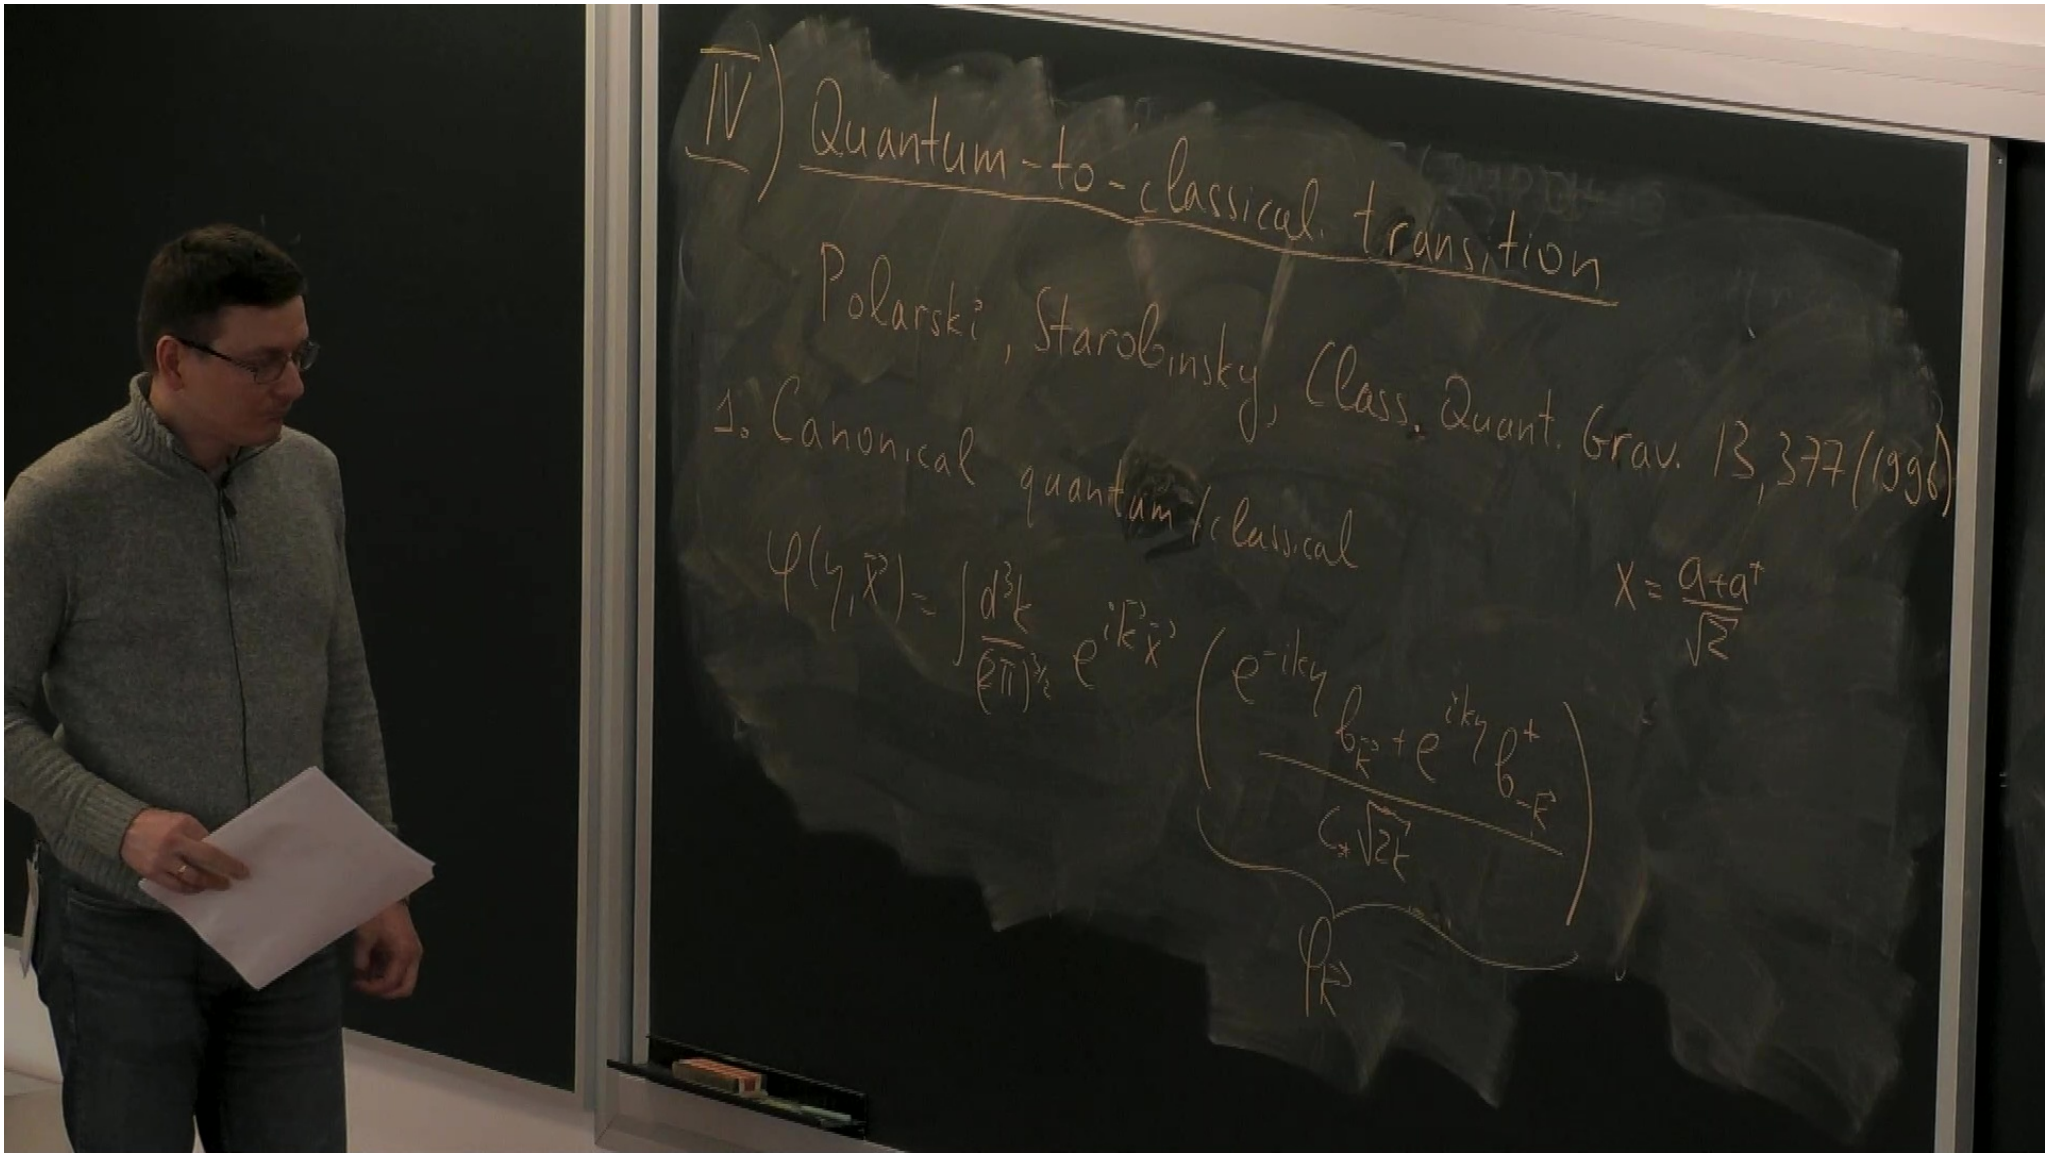 IV) Quantum-to-classical transition
Polarski, Starobinsky, Class. Quant. Grav. 13, 377 (1996)
1. Canonical quantum/classical
φ(η, x⃗) = ∫ d³k / (2π)^{3/2} e^{i k⃗ x⃗} ( (e^{-ikη} b_{k⃗} + e^{ikη} b⁺_{-k⃗}) / (C_* √2k) )
φ_{k⃗}
X = (a + a⁺) / √2